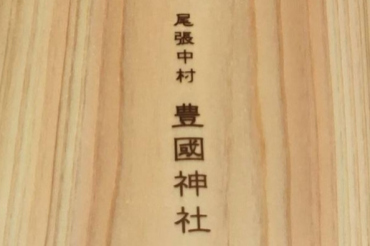 尾張中村
豊國神社